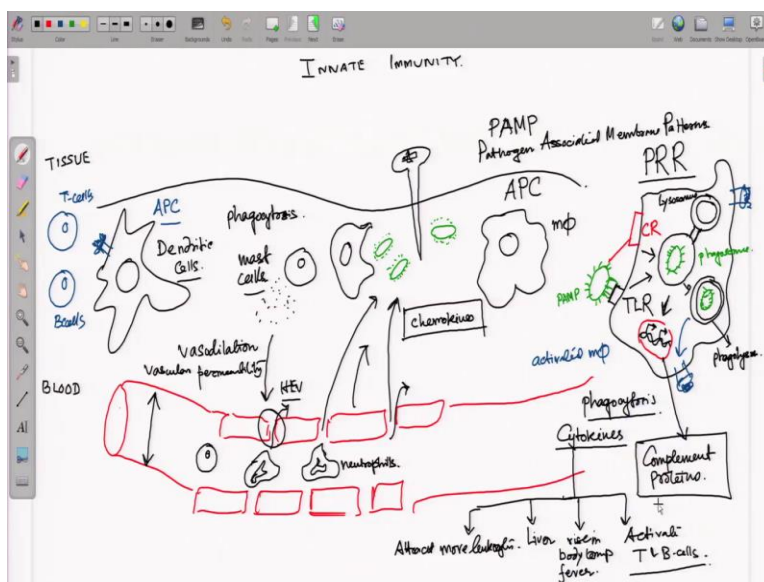 Stylus
Color
Line
Eraser
Backgrounds
Undo
Redo
Pages
Previous
Next
Erase
Board
Web
Documents
Show Desktop
OpenBoard
INNATE IMMUNITY.
PAMP
Pathogen Associated Membrane Patterns
PRR
TISSUE
T-cells
APC
Dendritic
cells.
phagocytosis
mast
cells
APC
mΦ
Lysosome
CR
phagosome
PAMP
TLR
Bcells
chemokines
Vasodilation
vascular permeability
activated mΦ
phagolysosome
BLOOD
HEV
neutrophills.
phagocytosis
Cytokines
Complement
proteins.
Attract more leukocytes.
Liver
rise in
body temp
fever.
Activate
T & B-cells.